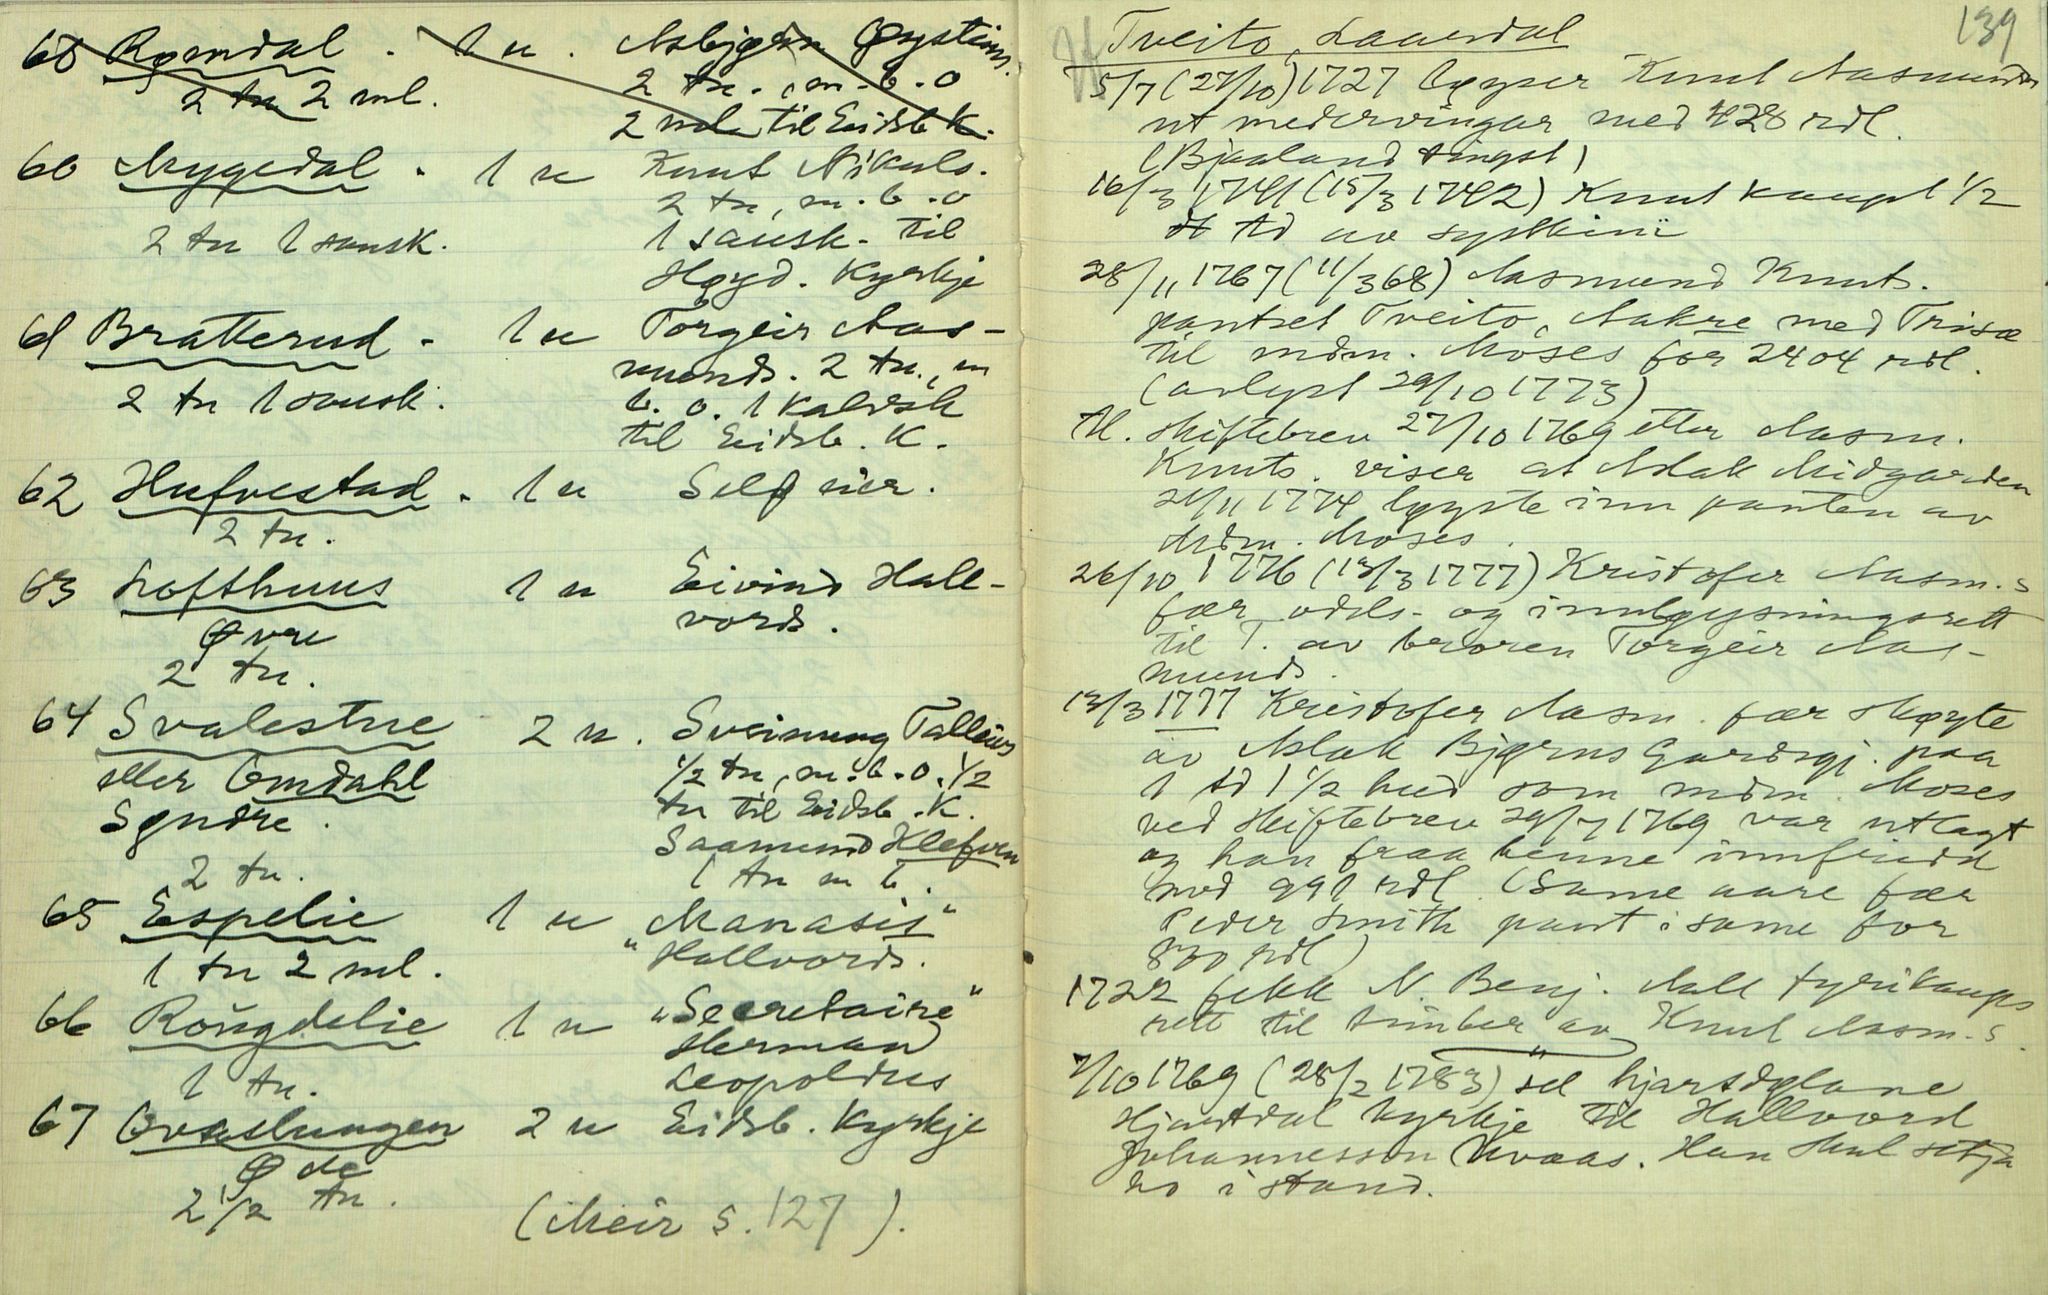 60 Rømdal . 1 u . Asbjørn Øystins.
2 tn 2 ml. 2 tn. , m. b. o
2 ml til Eidsb. K.
60 Mygedal . 1 u Knut Nikuls.
2 tn, m. b. o
2 tn 1 sausk. 1 sausk. til
Høyd. Kyrkje
61 Bratterud . 1 u Torgeir Aas-
munds. 2 tn., m
2 tn 1 sausk. b. o. 1 kalvsk
til Eidsb. K.
62 Hufvestad . 1 u Self eier.
2 tn.
63 Lofthuus 1 u Eivind Hall-
Øvre vords.
2 tn.
64 Svalestue 2 u . Sveinung Talleivs
eller Omdahl 1/2 tn, m. b. o. 1/2
Syndre. tn til Eidsb. K.
Saamund Klefven
2 tn. 1 tn m b.
65 Espelie 1 u "Manasis"
1 tn 2 ml. "Hallvords.
66 Roŭgdelie 1 u "Secretaire"
Herman
1 tn. Leopoldus
67 Graslungen 2 u Eidsb. Kyrkje
Øde
2 1/2 tn.
(Meir s. 127).
139
Tveito, Laardal
5/7 (27/10) 1727 løyser Knut Aasmunds
ut medervingar med 428 rdl.
(Bjaaland tingst)
16/3 1741 (15/3 1742) Knut kaupt 1/2
td av syskin
28/11 1767 (11/3 68) Aasmund Knuts.
pantset Tveito, Aakre med Trisæ
til mdm. Moses for 2404 rdl.
(avlyst 29/10 1773)
Al. skiftebrev 27/10 1769 etter Aasm.
Knuts. viser at Aslak Midgarden
21/11 1774 løyste inn panten av
Mdm. Moses.
26/10 1776 (13/3 1777) Kristofer Aasm.s
fær odels- og innløysningsrett
til T. av broren Torgeir Aas-
munds.
13/3 1777 Kristofer Aasm. fær skøyte
av Aslak Bjørns Gardsgj. paa
1 td 1 1/2 hud som mdm. Moses
ved skiftebrev 29/7 1769 var utlagt
og han fraa henne innfridd
med 991 rdl. (Same aare fær
Peder Smith pant i same for
830 rdl)
1722 fekk N. Benj. Aall fyrikaups
rett til timber av Knut Aasm.s.
7/10 1769 (28/2 1783) sel hjartdølane
Hjartdal kyrkje til Hallvord
Johannesson Kvaas. Han skul setja
ho i stand.